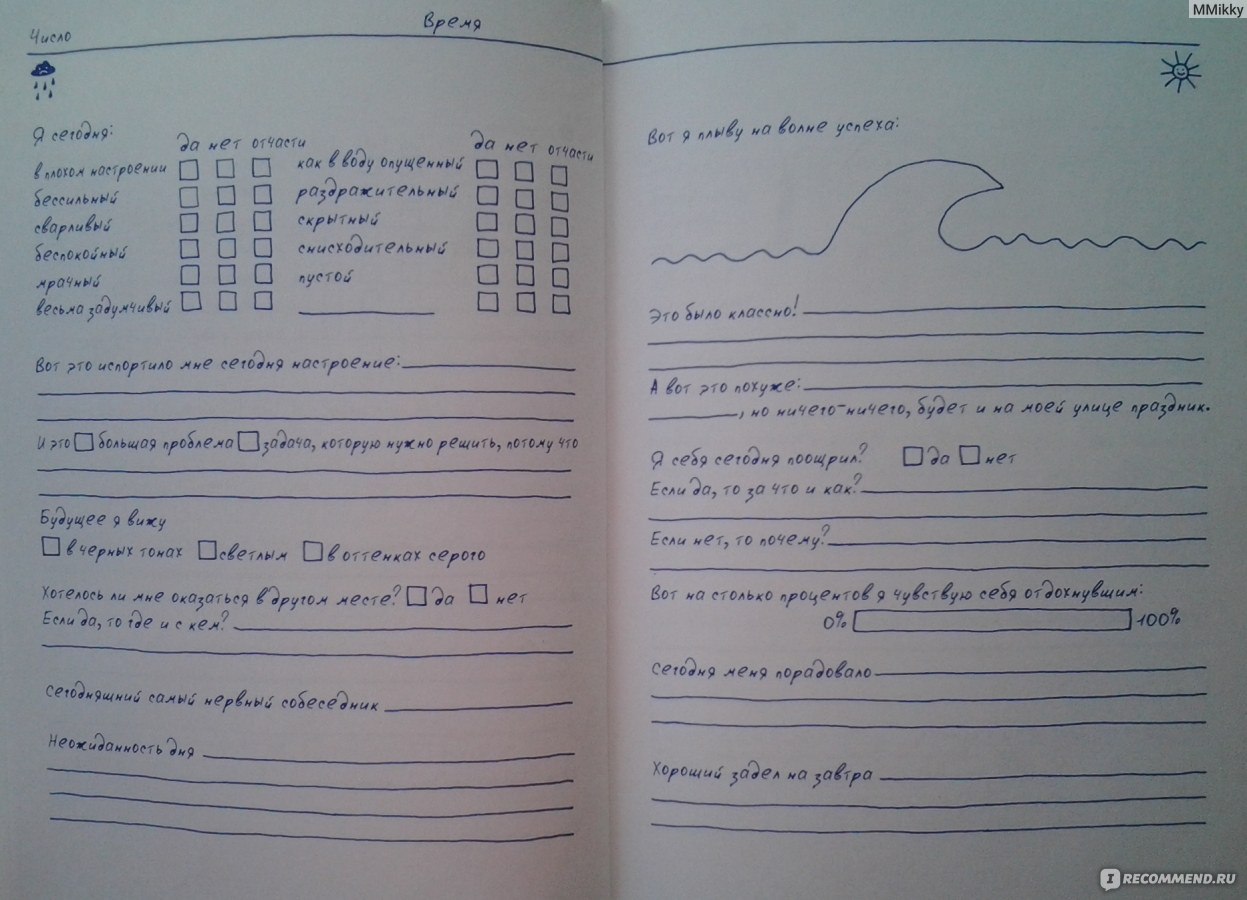 MMikky
Число
Время
Я сегодня:
да нет отчасти
в плохом настроении
бессильный
сварливый
беспокойный
мрачный
весьма задумчивый
да нет отчасти
как в воду опущенный
раздражительный
скрытный
снисходительный
пустой
Вот это испортило мне сегодня настроение:
И это большая проблема задача, которую нужно решить, потому что
Будущее я вижу
в черных тонах светлым в оттенках серого
Хотелось ли мне оказаться в другом месте? да нет
Если да, то где и с кем?
Сегодняшний самый нервный собеседник
Неожиданность дня
Вот я плыву на волне успеха:
Это было классно!
А вот это похуже:
, но ничего-ничего, будет и на моей улице праздник.
Я себя сегодня поощрил? да нет
Если да, то за что и как?
Если нет, то почему?
Вот на столько процентов я чувствую себя отдохнувшим:
0% 100%
Сегодня меня порадовало
Хороший задел на завтра
IRECOMMEND.RU